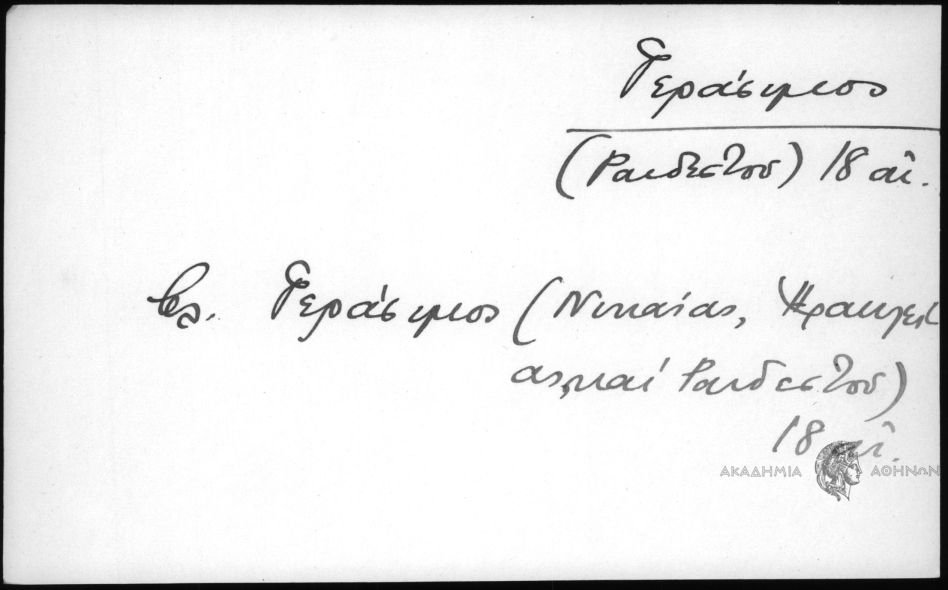 Γεράσιμος
(Ραιδεστοῦ) 18 αἰ.
βλ. Γεράσιμος (Νικαίας, Ἡρακλεί
ας, καί Ραιδεστοῦ)
18 αἰ.
ΑΚΑΔΗΜΙΑ ΑΘΗΝΩΝ